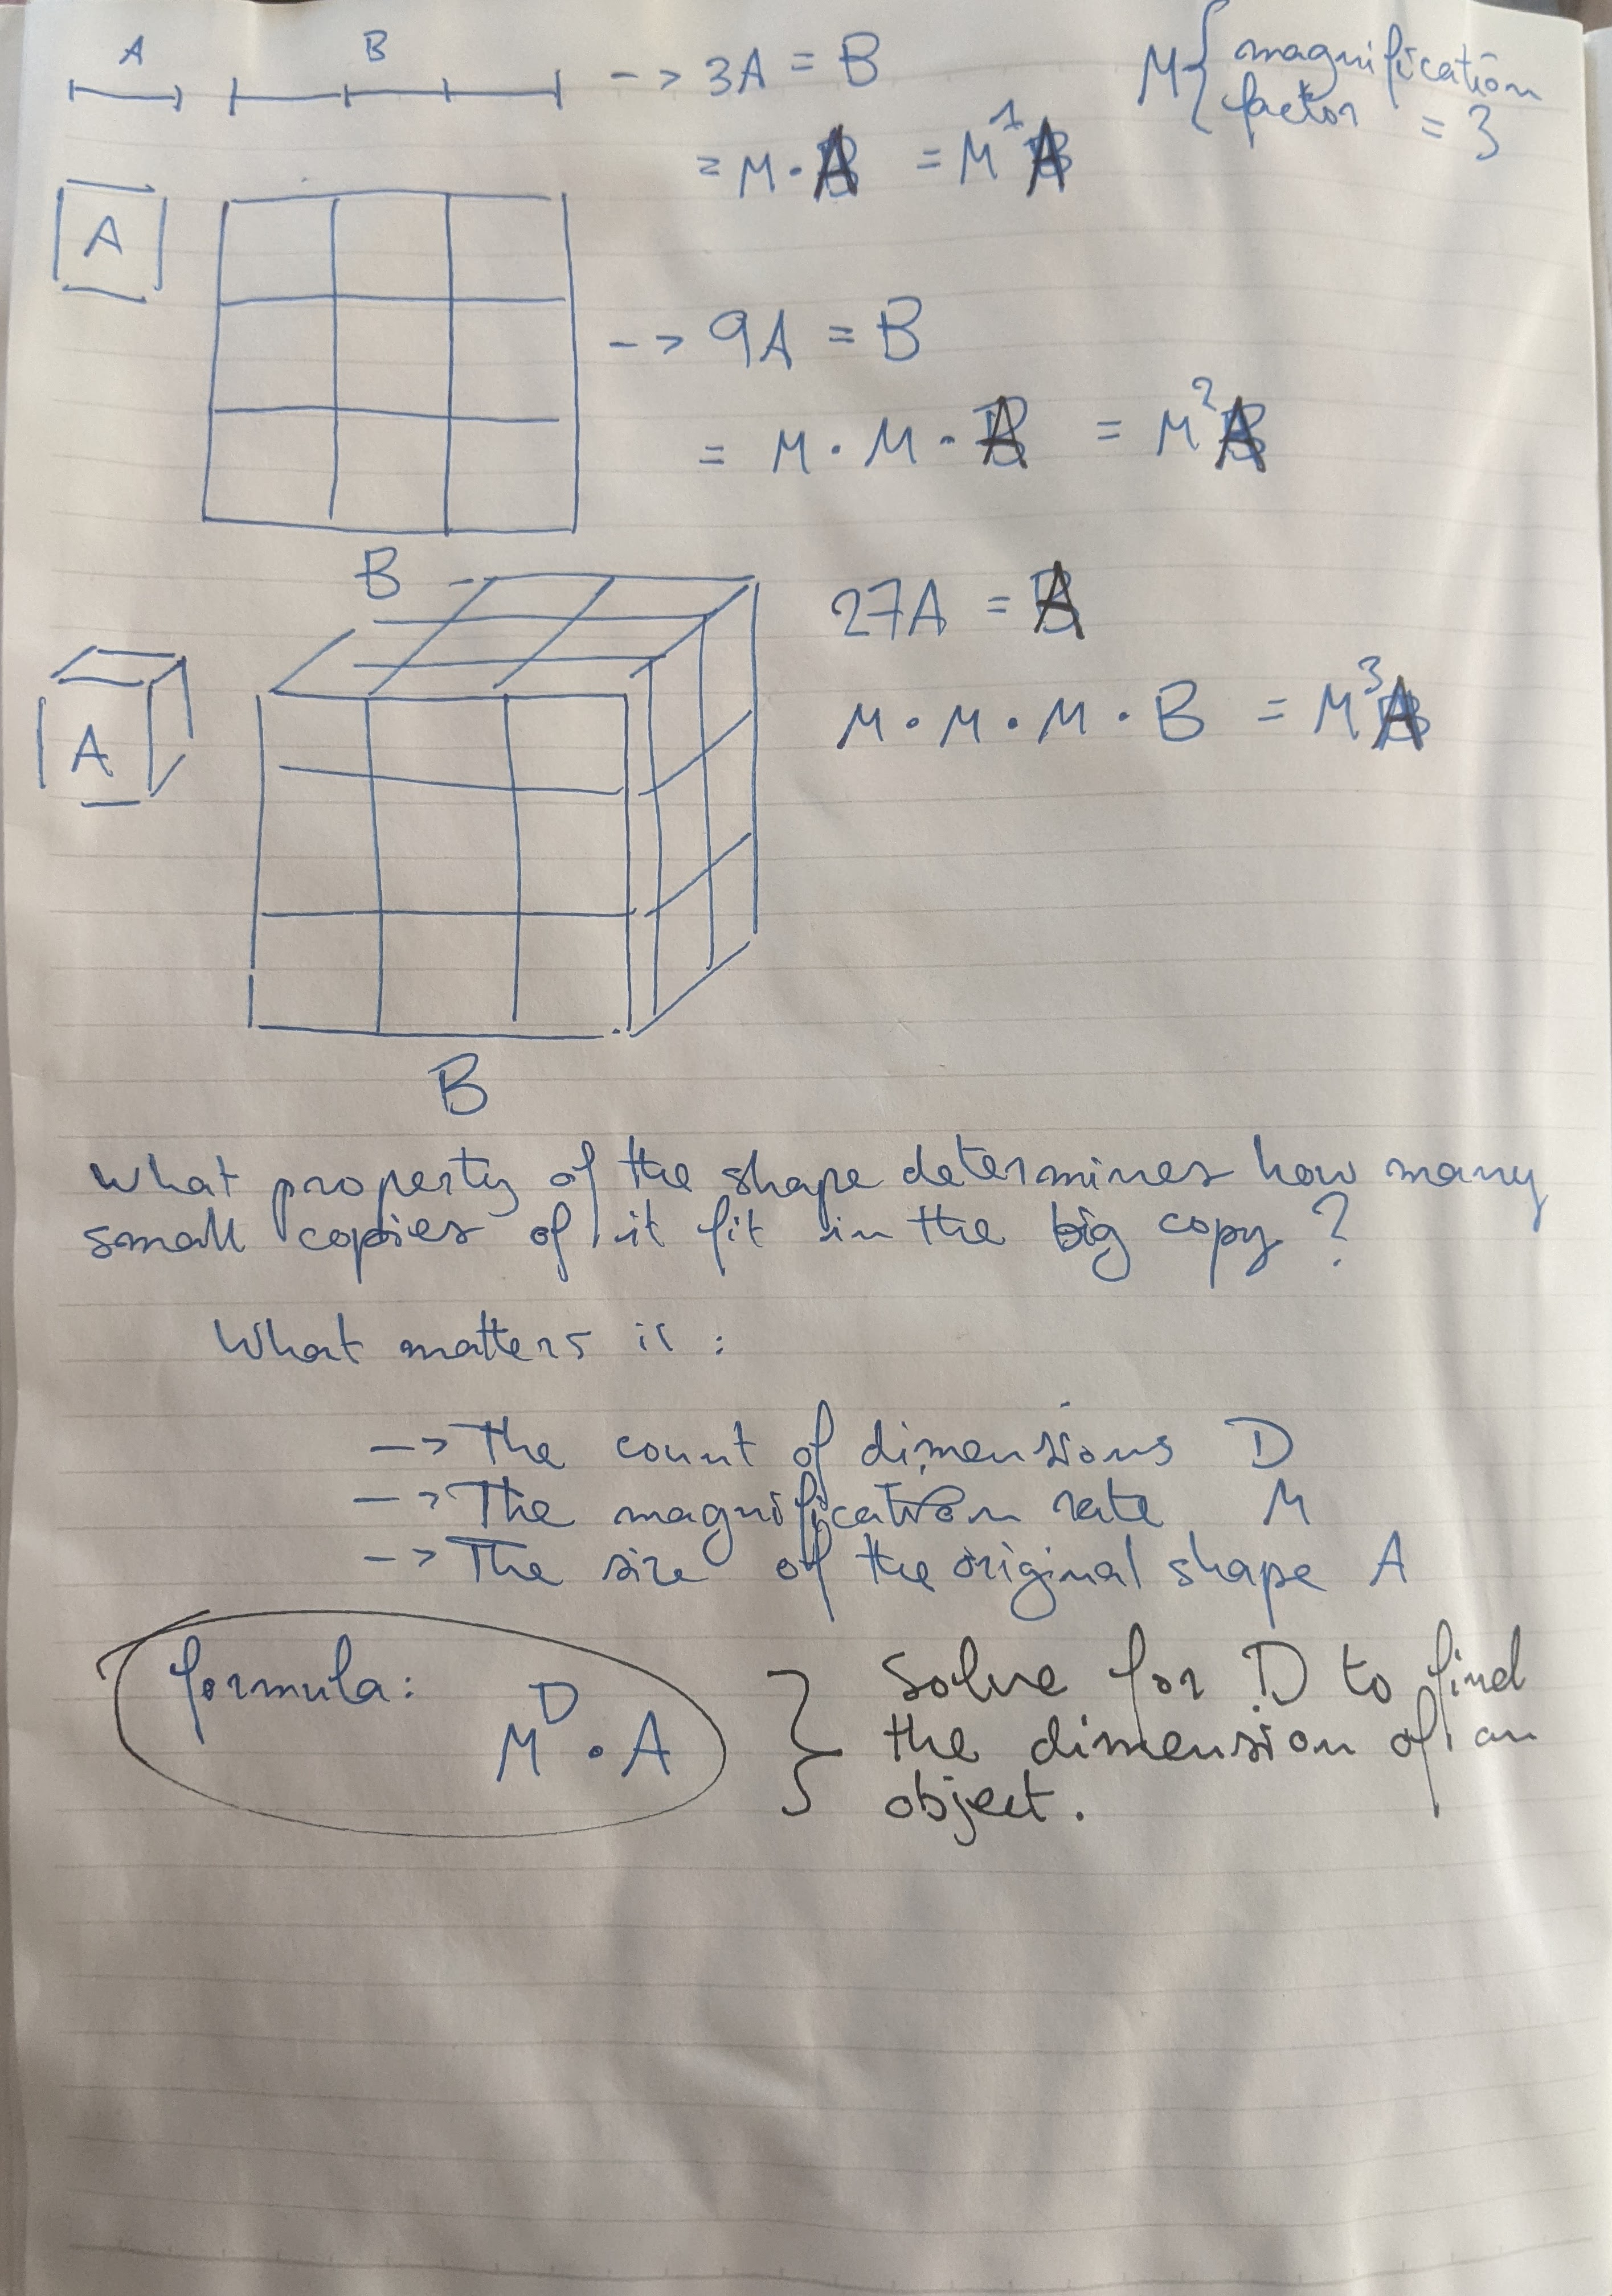 A
B
-> 3A = B
M { magnification
factor = 3
= M · A = M¹A
A
-> 9A = B
= M · M · A = M²A
B
27A = A
A
M · M · M · B = M³A
B
What property of the shape determines how many
small copies of it fit in the big copy ?
What matters is :
-> The count of dimensions D
-> The magnification rate M
-> The size of the original shape A
formula:
M^D · A
} Solve for D to find
the dimension of an
object.